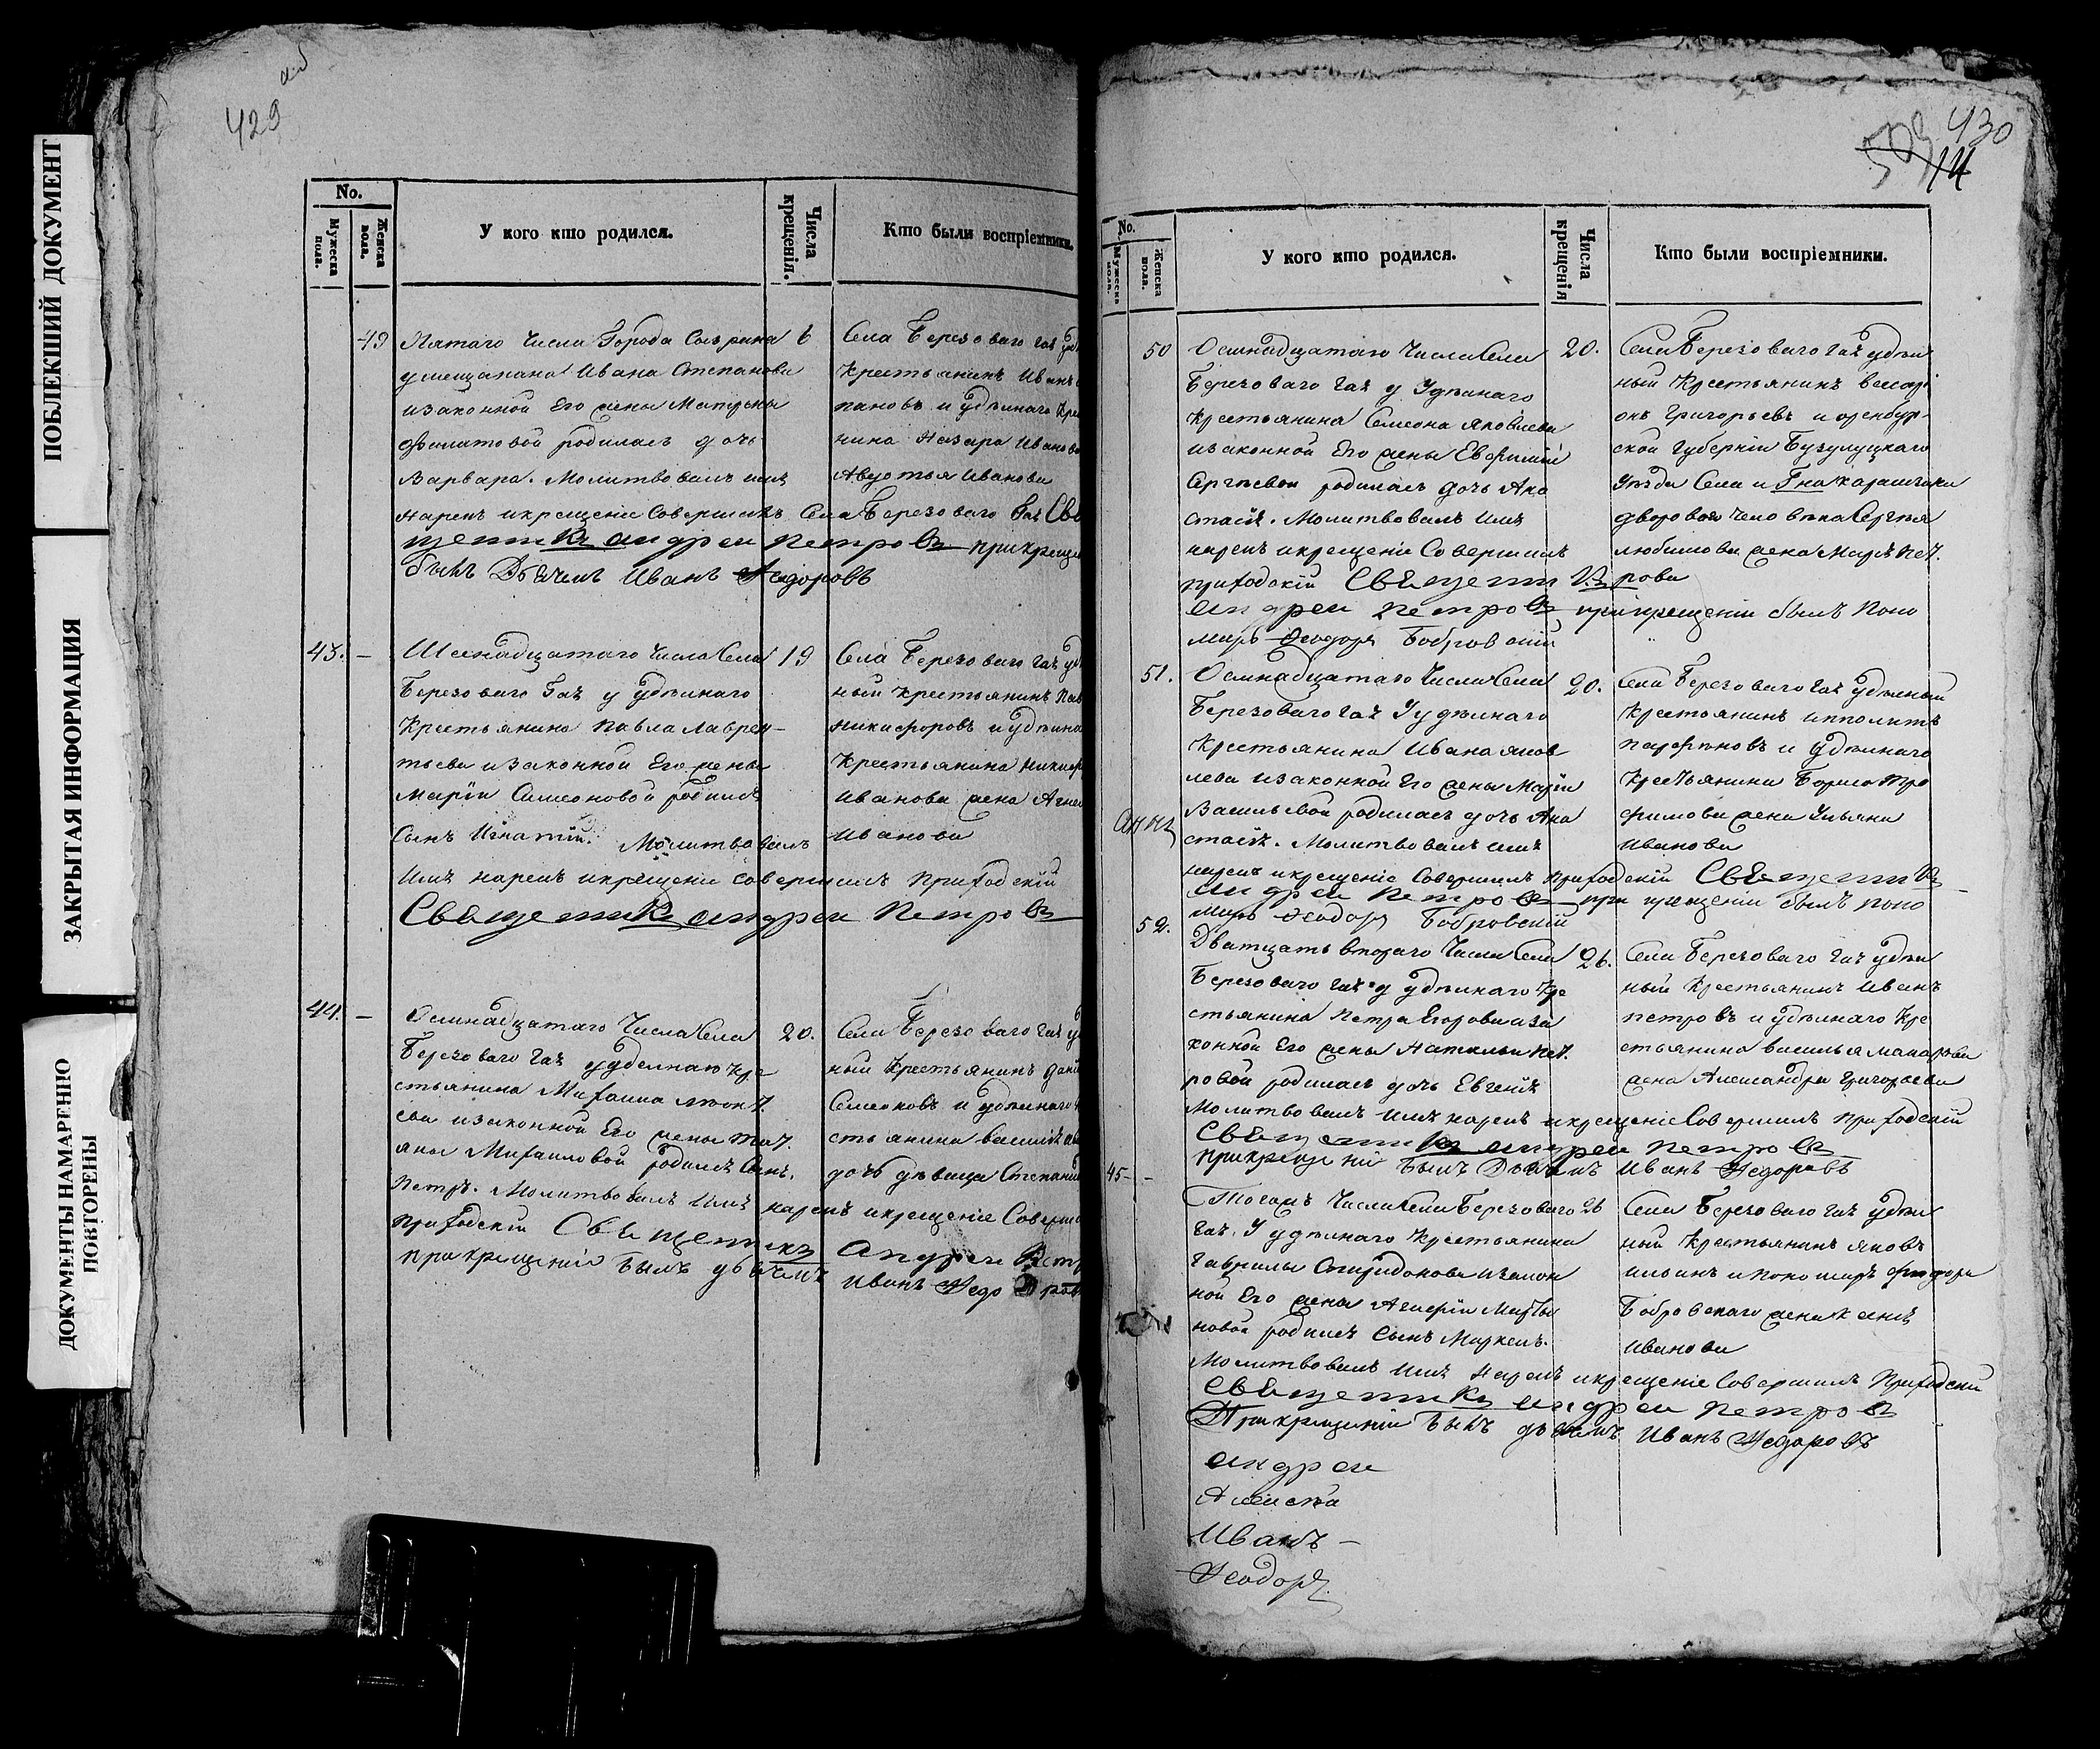 ПОБЛЕКШИЙ ДОКУМЕНТ
ЗАКРЫТАЯ ИНФОРМАЦИЯ
ДОКУМЕНТЫ НАМАРЕННО
ПОВТОРЕНЫ
429
No.
Мужеска пола.
Женска пола.
У кого кто родился.
Числа крещенія.
Кто были воспріемники.
49
Пятаго числа Города Сызрана
умещанина Ивана Степанова
изаконной Его жены Матрены
Филатовой родилась дочь
Варвара. Молитвовалъ имя
нарекъ икрещение Совершилъ Села Березоваго Гая Свя
щенникъ андрей петровъ прикреще
былъ Дьячекъ Иванъ Феодоровъ
6
Села Березоваго гая
Крестьянинъ Иванъ
пановъ и удѣлнаго
нина Назара Иванова
Авдотья Иванова
43. —
Шеснадцатаго числа Села
Березоваго Гая у удѣлнаго
Крестьянина Павла Лаврен-
тьева изаконной Его жены
Маріи Симеоновой родился
Сынъ Игнатій. Молитвовалъ
Имя нарекъ икрещение совершилъ Приходскій
Священникъ андрей Петровъ
19
Села Березоваго гая
ный крестьянинъ
никифоровъ и удѣлна
Крестьянина
Иванова жена
Иванова
44. —
Осмнадцатаго Числа Села
Березоваго гая уудѣлнаго кре
стьянина Михаила Леонт.
ева изаконной Его жены Тат.
яны Михаиловой родился Сынъ.
Петръ. Молитвовалъ Имя нарекъ икрещение Соверши
приходскій Священникъ Андрей Петр
прикрещеніи былъ дьячекъ Иванъ Федоров
20.
Села Березоваго гая
ный крестьянинъ
Семеновъ и удѣлнаго
стьянина
дочь дѣвица Степанид
430
14
No.
Мужеска пола.
Женска пола.
У кого кто родился.
Числа крещенія
Кто были воспріемники.
50
Осмнадцатаго Числа Села
Березоваго гая у Удѣлнаго
Крестьянина Симеона Яковлева
изаконной Его жены Евфиміи
Сергѣевои родилась дочь Ана
стасія. Молитвовалъ имя
нарекъ икрещение Совершилъ
приходскій Священникъ
андрей петровъ прикрещеніи былъ поно
марь Феодоръ Бобровскій
20.
Села Березоваго гая удѣл
ный Крестьянинъ висарі
онъ Григорьевъ и оренбур-
ской Губерніи Бузулуцкаго
уѣзда Села и Гна карашина
двороваго человѣка Сергѣя
любимова жена Марѣя пет.
рова
51.
Осмнадцатаго Числа Села
Березоваго гая У удѣлнаго
Крестьянина Ивана яков
лева изаконной Его жены Маріи
Васильевой родилась дочь Ана
стасія. Молитвовалъ имя
нарекъ икрещение Совершилъ приходскій Священникъ
андрей Петровъ при крещеніи былъ поно
марь Феодоръ Бобровскій
Анна
20.
Села Березоваго гая Удѣлный
Крестьянинъ иполитъ
парфеновъ и удѣлнаго
Крестьянина Бориса Тро
фимова жена Ульяна
Иванова
52.
Дватцать втораго Числа Села
Березоваго гая у удѣлнаго Кре
стьянина Петра Егорова иза
конной Его жены Натальи пет.
ровой родилась дочь Евгенія
Молитвовалъ имя нарекъ икрещеніе Совершилъ приходскій
Священникъ андрей петровъ
прикрещеніи былъ Дьячекъ Иванъ Федоровъ
26.
Села Березоваго гая удѣл
ный Крестьянинъ Иванъ
петровъ и удѣлнаго Кре
стьянина василья макарова
жена Александра Григорьева
45 — -
Тогожъ Числа Села Березоваго
гая. У удѣлнаго Крестьянина
Гаврилы Спиридонова изакон
ной Его жены
новой родился Сынъ Маркелъ.
Молитвовалъ имя Нарекъ икрещеніе Совершилъ Приходскій
Священникъ андрей петровъ
При крещеніи былъ дьячекъ Иванъ Федоровъ
26
Села Березоваго гая удѣл
ный Крестьянинъ яковъ
ильинъ и пономаря феодора
Бобровскаго жена ксенія
Иванова
андрей
Иванъ —
Феодоръ